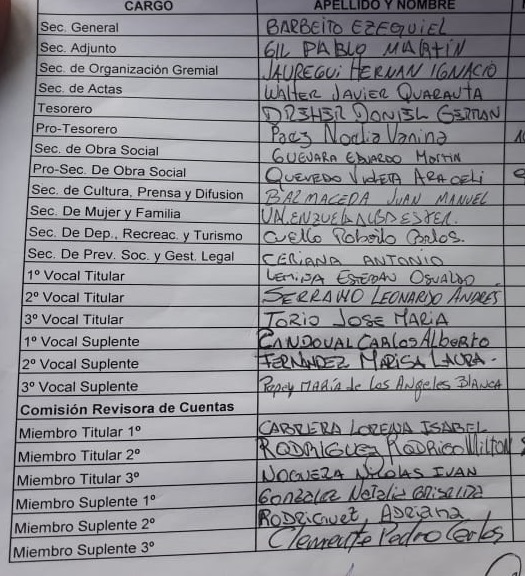 CARGO APELLIDO Y NOMBRE
Sec. General BARBEITO EZEQUIEL
Sec. Adjunto GIL PABLO MARTÍN
Sec. de Organización Gremial JAUREGUI HERNAN IGNACIO
Sec. de Actas WALTER JAVIER QUARANTA
Tesorero DREHER DANIEL GERMAN
Pro-Tesorero Paez Noelia Vanina
Sec. de Obra Social GUEVARA EDUARDO Martin
Pro-Sec. De Obra Social QUEVEDO VIOLETA ARACELI
Sec. de Cultura, Prensa y Difusion BALMACEDA JUAN MANUEL
Sec. De Mujer y Familia VALENZUELA ALBA ESTER.
Sec. De Dep., Recreac. y Turismo Cuello Roberto Carlos.
Sec. De Prev. Soc. y Gest. Legal CERIANA ANTONIO
1º Vocal Titular ESTEBAN OSVALDO
2º Vocal Titular SERRANO LEONARDO ANDRES
3º Vocal Titular TORIO JOSE MARIA
1º Vocal Suplente SANDOVAL CARLOS Alberto
2º Vocal Suplente FERNANDEZ MARISA LAURA.-
3º Vocal Suplente MARÍA de Los Angeles BLANCA
Comisión Revisora de Cuentas
Miembro Titular 1º CABRERA LORENA ISABEL
Miembro Titular 2º RODRIGUEZ RODRIGO MILTON
Miembro Titular 3º NOGUEZA NICOLAS IVAN
Miembro Suplente 1º GONZALEZ Natalia GRISELDA
Miembro Suplente 2º RODRIGUEZ ADRIANA
Miembro Suplente 3º Clemente Pedro Carlos